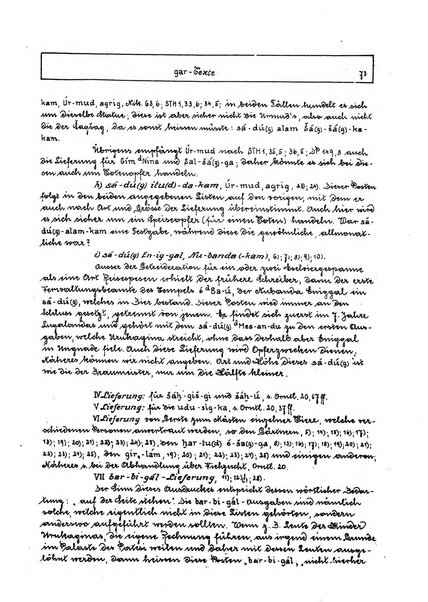 gar-Texte
73
kam, Úr-mud, agrig, Nik. 63,6; STH 1,33,6; 34,5; in beiden Fällen handelt es sich
um dieselbe Statue; diese ist aber sicher nicht die Urmud's, also auch nicht
die der Šagšag, da es sonst heissen müsste: sá-dú(g) alam Šá(g)-šá(g)-ka-
kam.
Übrigens empfängt Úr-mud nach STH 1,35,5; 36,5; DP 149,3 auch
die Lieferung für Gím dNina und šal-šá(g)-ga; daher könnte es sich bei die-
sen auch um Totenopfer handeln.
h) sá-dú(g) itu(d)-da-kam, Úr-mud, agrig, 23); 24). Dieser Posten
folgt in den beiden angegebenen Listen auf den vorigen, mit dem er
auch nach Art und Grösse der Lieferung übereinstimmt. Auch hier wird
es sich sicher um ein Speiseopfer (für einen Toten) handeln. War sá-
dú(g)-alam-kam eine Festgabe, während diese die gewöhnliche, allmonat-
liche war?
i) sá-dú(g) En-ig-gal, Nu-banda (-kam), 6); 7); 8); 9); 10).
Ausser der Getreideration für ein oder zwei Eselviergespanne
als eine Art Reisespesen erhielt der frühere Schreiber, dann der erste
Verwaltungsbeamte des Tempels é dBa-ú, der Nubanda Eniggal ein
sá-dú(g), welches in Bier bestand. Dieser Posten wird immer an den
Schluss gesetzt, getrennt von jenem. Er findet sich zuerst im 7. Jahre
Lugalandas und gehört mit dem sá-dú(g) dMes-an-du zu den ersten Aus-
gaben, welche Urukagina streicht, ohne dass deshalb aber Eniggal
in Ungnade fiele. Auch diese Lieferung wird Opferzwecken dienen,
Näheres können wir nicht angeben. Art und Höhe dieses sá-dú(g) ist
wie die der Braumeister, nur um die Hälfte kleiner.
IV Lieferung: für šáḫ-giš-gi und šáḫ-ú, s. Orntl. 20, 57ff.
V Lieferung: für die udu-sig-ka, s. Orntl. 20, 37ff.
VI Lieferung von Gerste zum Mästen einzelner Tiere, welche ver-
schiedenen Personen anvertraut werden, so den Gärtnern, 5); 14); 15); 16); 17);
18); 19); 20); 21); 22); 23); 24); 25), den har-tu(d) é-šá(g)-ga, 8); 13); 16); 18); 19); 20); 21);
22); 23); 24); 25), den gir-lam, 19); 20); 21); 22); 23); 24); 25) und einigen anderen,
Näheres s. bei der Abhandlung über Viehzucht, Orntl. 20.
VII bar-bi-gál-Lieferung,
Der Sinn dieses Ausdruckes entspricht dessen wörtlicher Bedeu-
tung: „auf der Seite stehen“. Die bar-bi-gál-Ausgaben sind nämlich
solche, welche eigentlich nicht in diese Listen gehörten, sondern
anderswo aufgeführt werden sollten. Wenn z. B. Leute der Kinder
Urukaginas, die eigene Rechnung führen, aus irgend einem Grunde
im Palaste des Patesi weilen und daher mit dessen Leuten ausge-
löhnt werden, dann heissen diese Posten „bar-bi-gál“, „nicht hierher